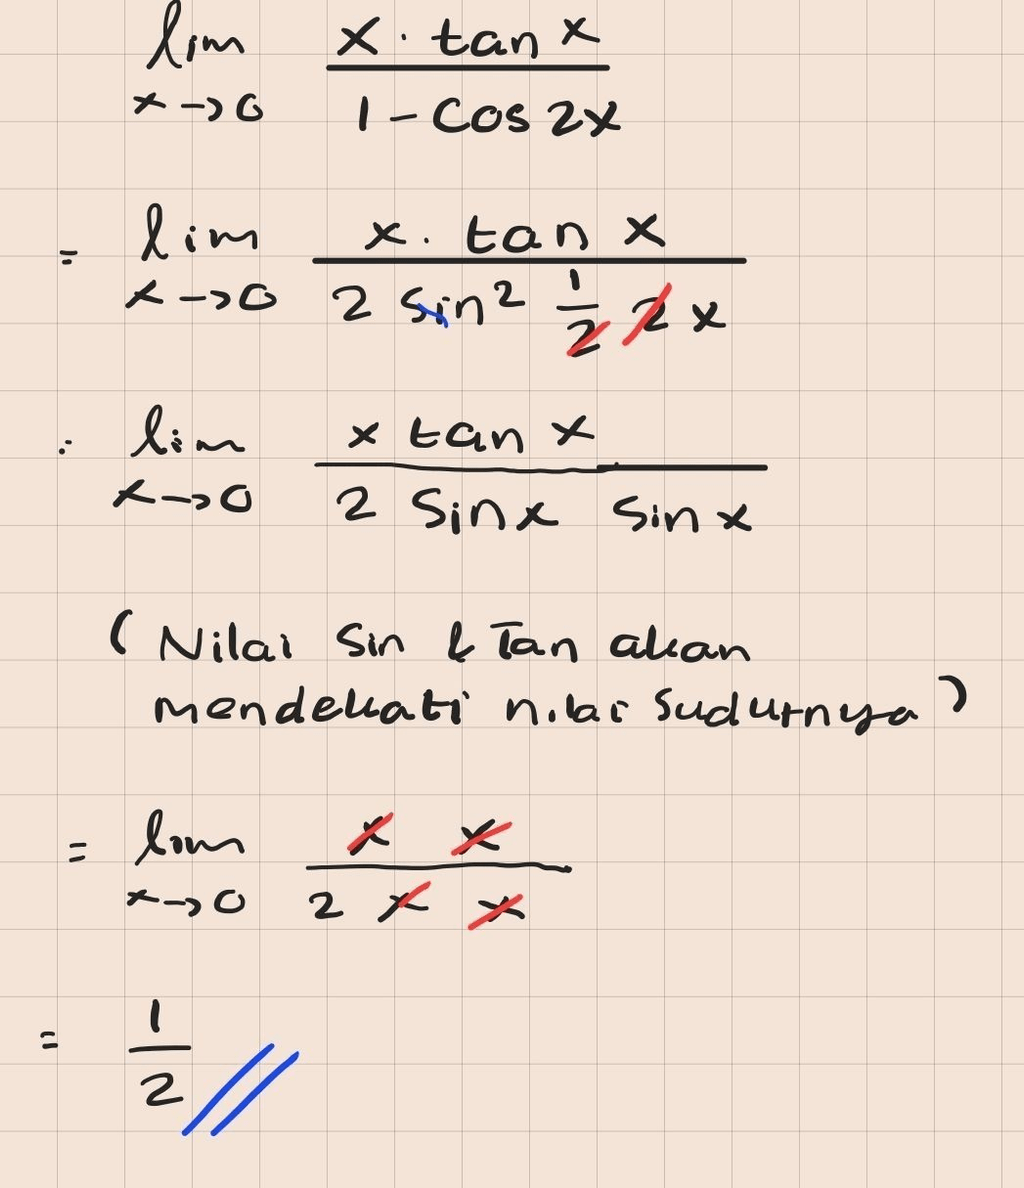 lim x · tan x
x→0 1 - Cos 2x
= lim x · tan x
x→0 2 Sin² 1/2 2 x
: lim x tan x
x→0 2 Sin x Sin x
( Nilai Sin & Tan akan
mendekati nilai Sudutnya )
= lim x x
x→0 2 x x
= 1
2